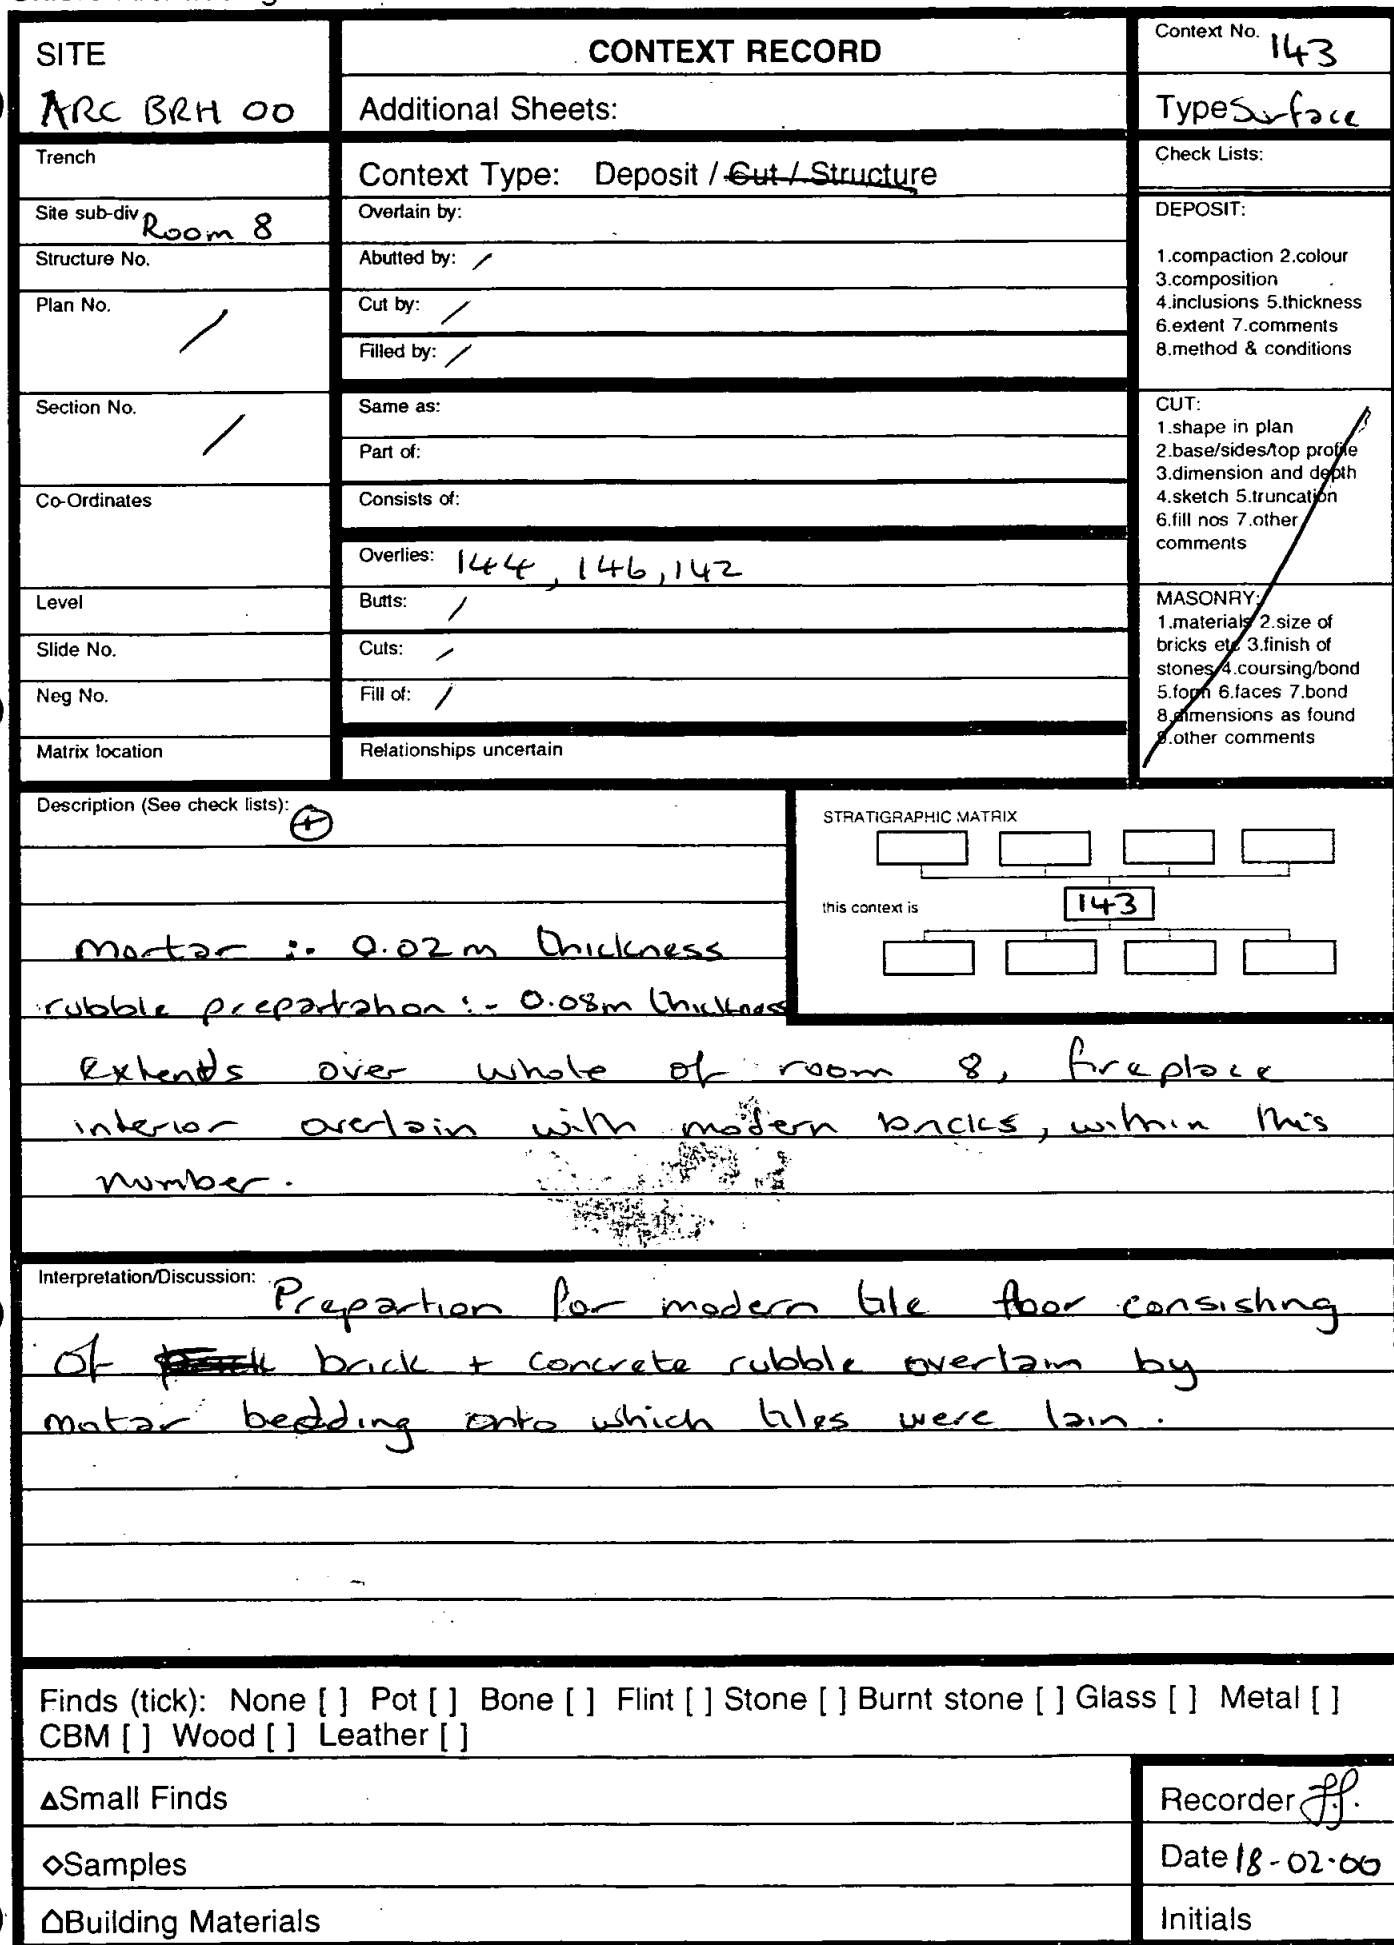 SITE
ARC BRH 00
CONTEXT RECORD
Additional Sheets:
Context No. 143
Type Surface
Trench
Site sub-div Room 8
Structure No.
Plan No. /
Section No. /
Co-Ordinates
Level
Slide No.
Neg No.
Matrix location
Context Type: Deposit / Cut / Structure
Overlain by:
Abutted by: /
Cut by: /
Filled by: /
Same as:
Part of:
Consists of:
Overlies: 144, 146, 142
Butts: /
Cuts: /
Fill of: /
Relationships uncertain
Check Lists:
DEPOSIT:
1.compaction 2.colour
3.composition
4.inclusions 5.thickness
6.extent 7.comments
8.method & conditions
CUT:
1.shape in plan
2.base/sides/top profile
3.dimension and depth
4.sketch 5.truncation
6.fill nos 7.other
comments
MASONRY:
1.materials 2.size of
bricks etc 3.finish of
stones 4.coursing/bond
5.form 6.faces 7.bond
8.dimensions as found
9.other comments
Description (See check lists): +
mortar :- 0.02m thickness
rubble prepartation :- 0.08m thickness
extends over whole of room 8, fireplace
interior overlain with modern bricks, within this
number.
STRATIGRAPHIC MATRIX
this context is 143
Interpretation/Discussion: Prepartion for modern tile floor consisting
of brick + concrete rubble overlain by
motar bedding onto which tiles were lain.
Finds (tick): None [ ] Pot [ ] Bone [ ] Flint [ ] Stone [ ] Burnt stone [ ] Glass [ ] Metal [ ]
CBM [ ] Wood [ ] Leather [ ]
Small Finds
Samples
Building Materials
Recorder
Date 18-02-00
Initials